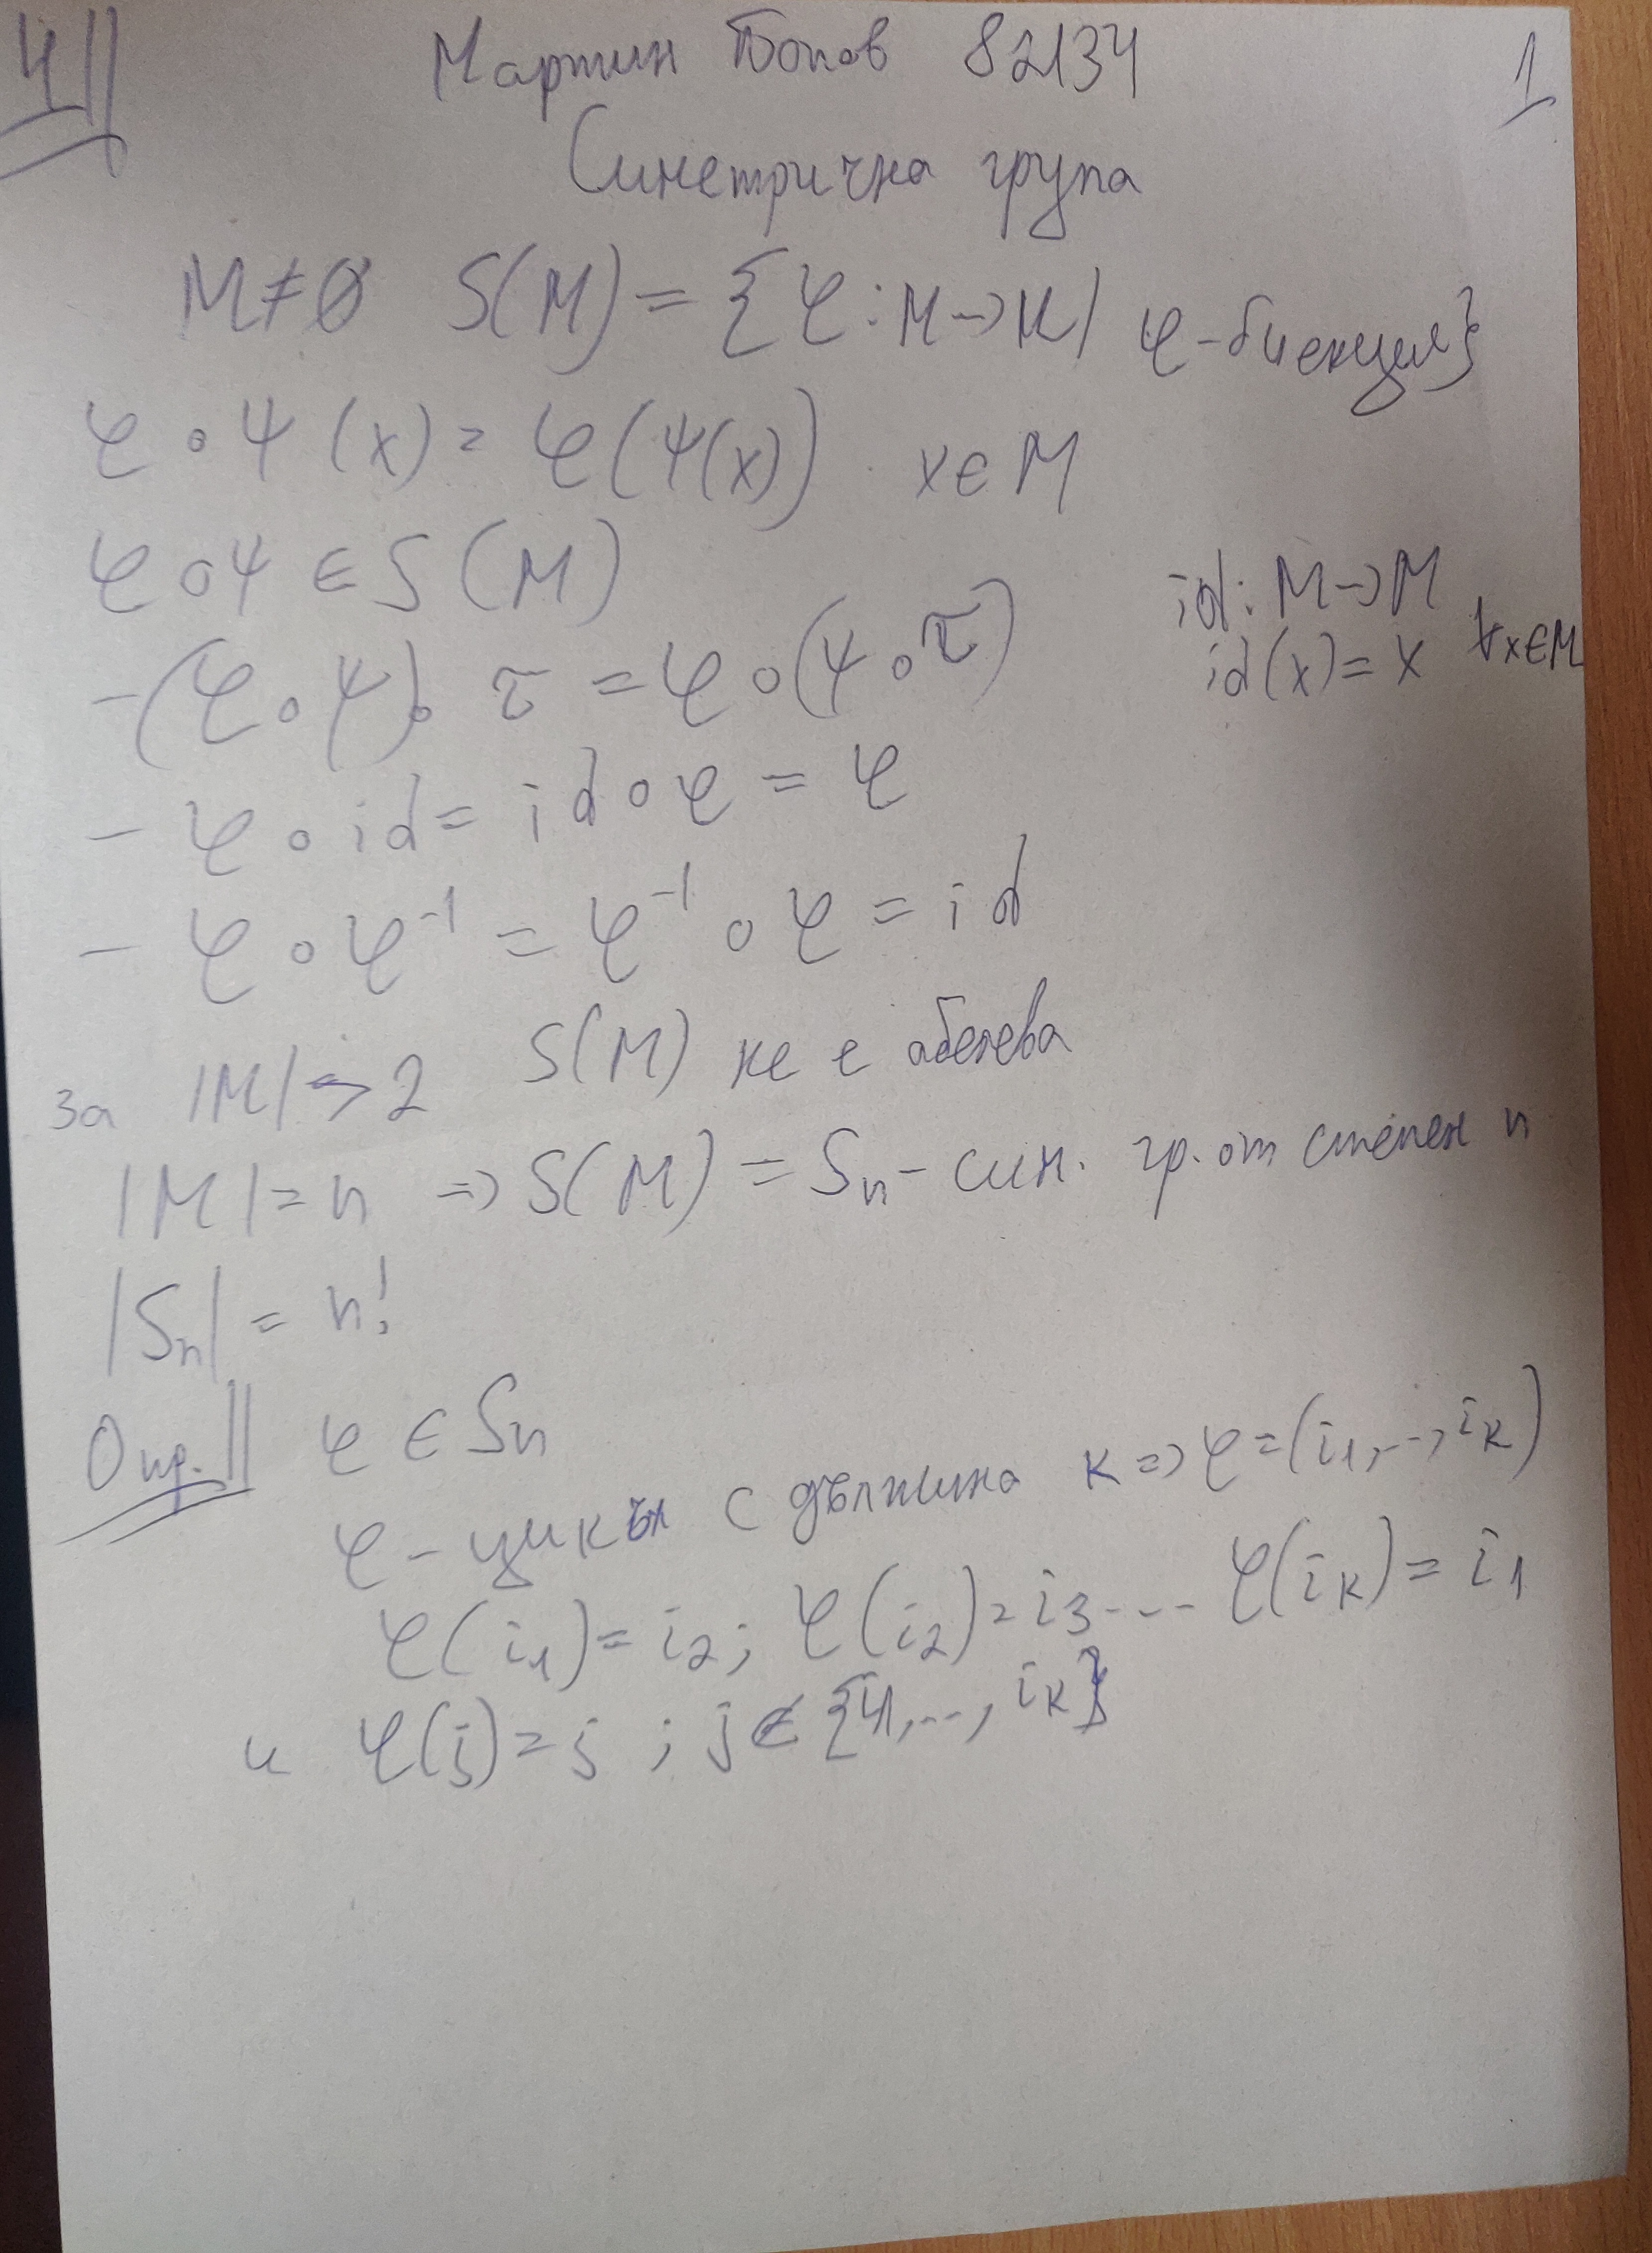 4||
Мартин Попов 82134
1
Симетрична група
M≠∅ S(M) = {φ: M→M | φ-биекция}
φ∘ψ(x) = φ(ψ(x)) x∈M
φ∘ψ ∈ S(M)
id: M→M
id(x) = x ∀x∈M
-(φ∘ψ)∘τ = φ∘(ψ∘τ)
- φ∘id = id∘φ = φ
- φ∘φ⁻¹ = φ⁻¹∘φ = id
За |M| > 2 S(M) не е абелева
|M| = n => S(M) = Sₙ - сим. гр. от степен n
|Sₙ| = n!
Опр.|| φ ∈ Sₙ
φ - цикъл с дължина к => φ = (i₁,..., iₖ)
φ(i₁) = i₂; φ(i₂) = i₃ ... φ(iₖ) = i₁
и φ(j) = j ; j∉{i₁,..., iₖ}